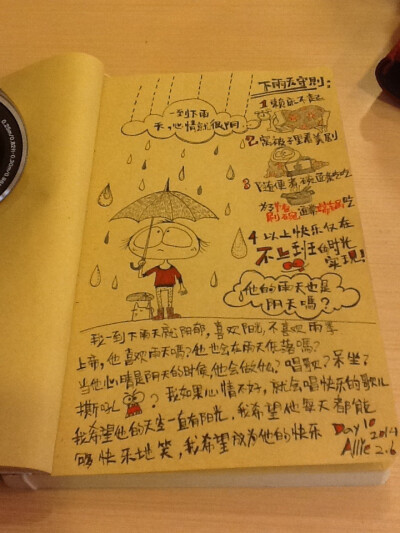 一到下雨
天,心情就很阴
下雨天守则:
1 赖床不起
2. 窝被子里看美剧
3 随便煮碗面吃吃
4 以上快乐仅在
不上班的时光
实现!
他的雨天也是
阴天嗎?
我一到下雨天就阴郁,喜欢阳光,不喜欢雨季
上帝,他喜欢雨天嗎?他也会在雨天低落嗎?
当他心情是阴天的时候,他会做什么?唱歌?呆坐?
撕吼?我如果心情不好,就会唱快乐的歌儿
我希望他的天空一直有阳光,我希望他每天都能
够快乐地笑,我希望成为他的快乐
Day 10
2014
Allie 2.6